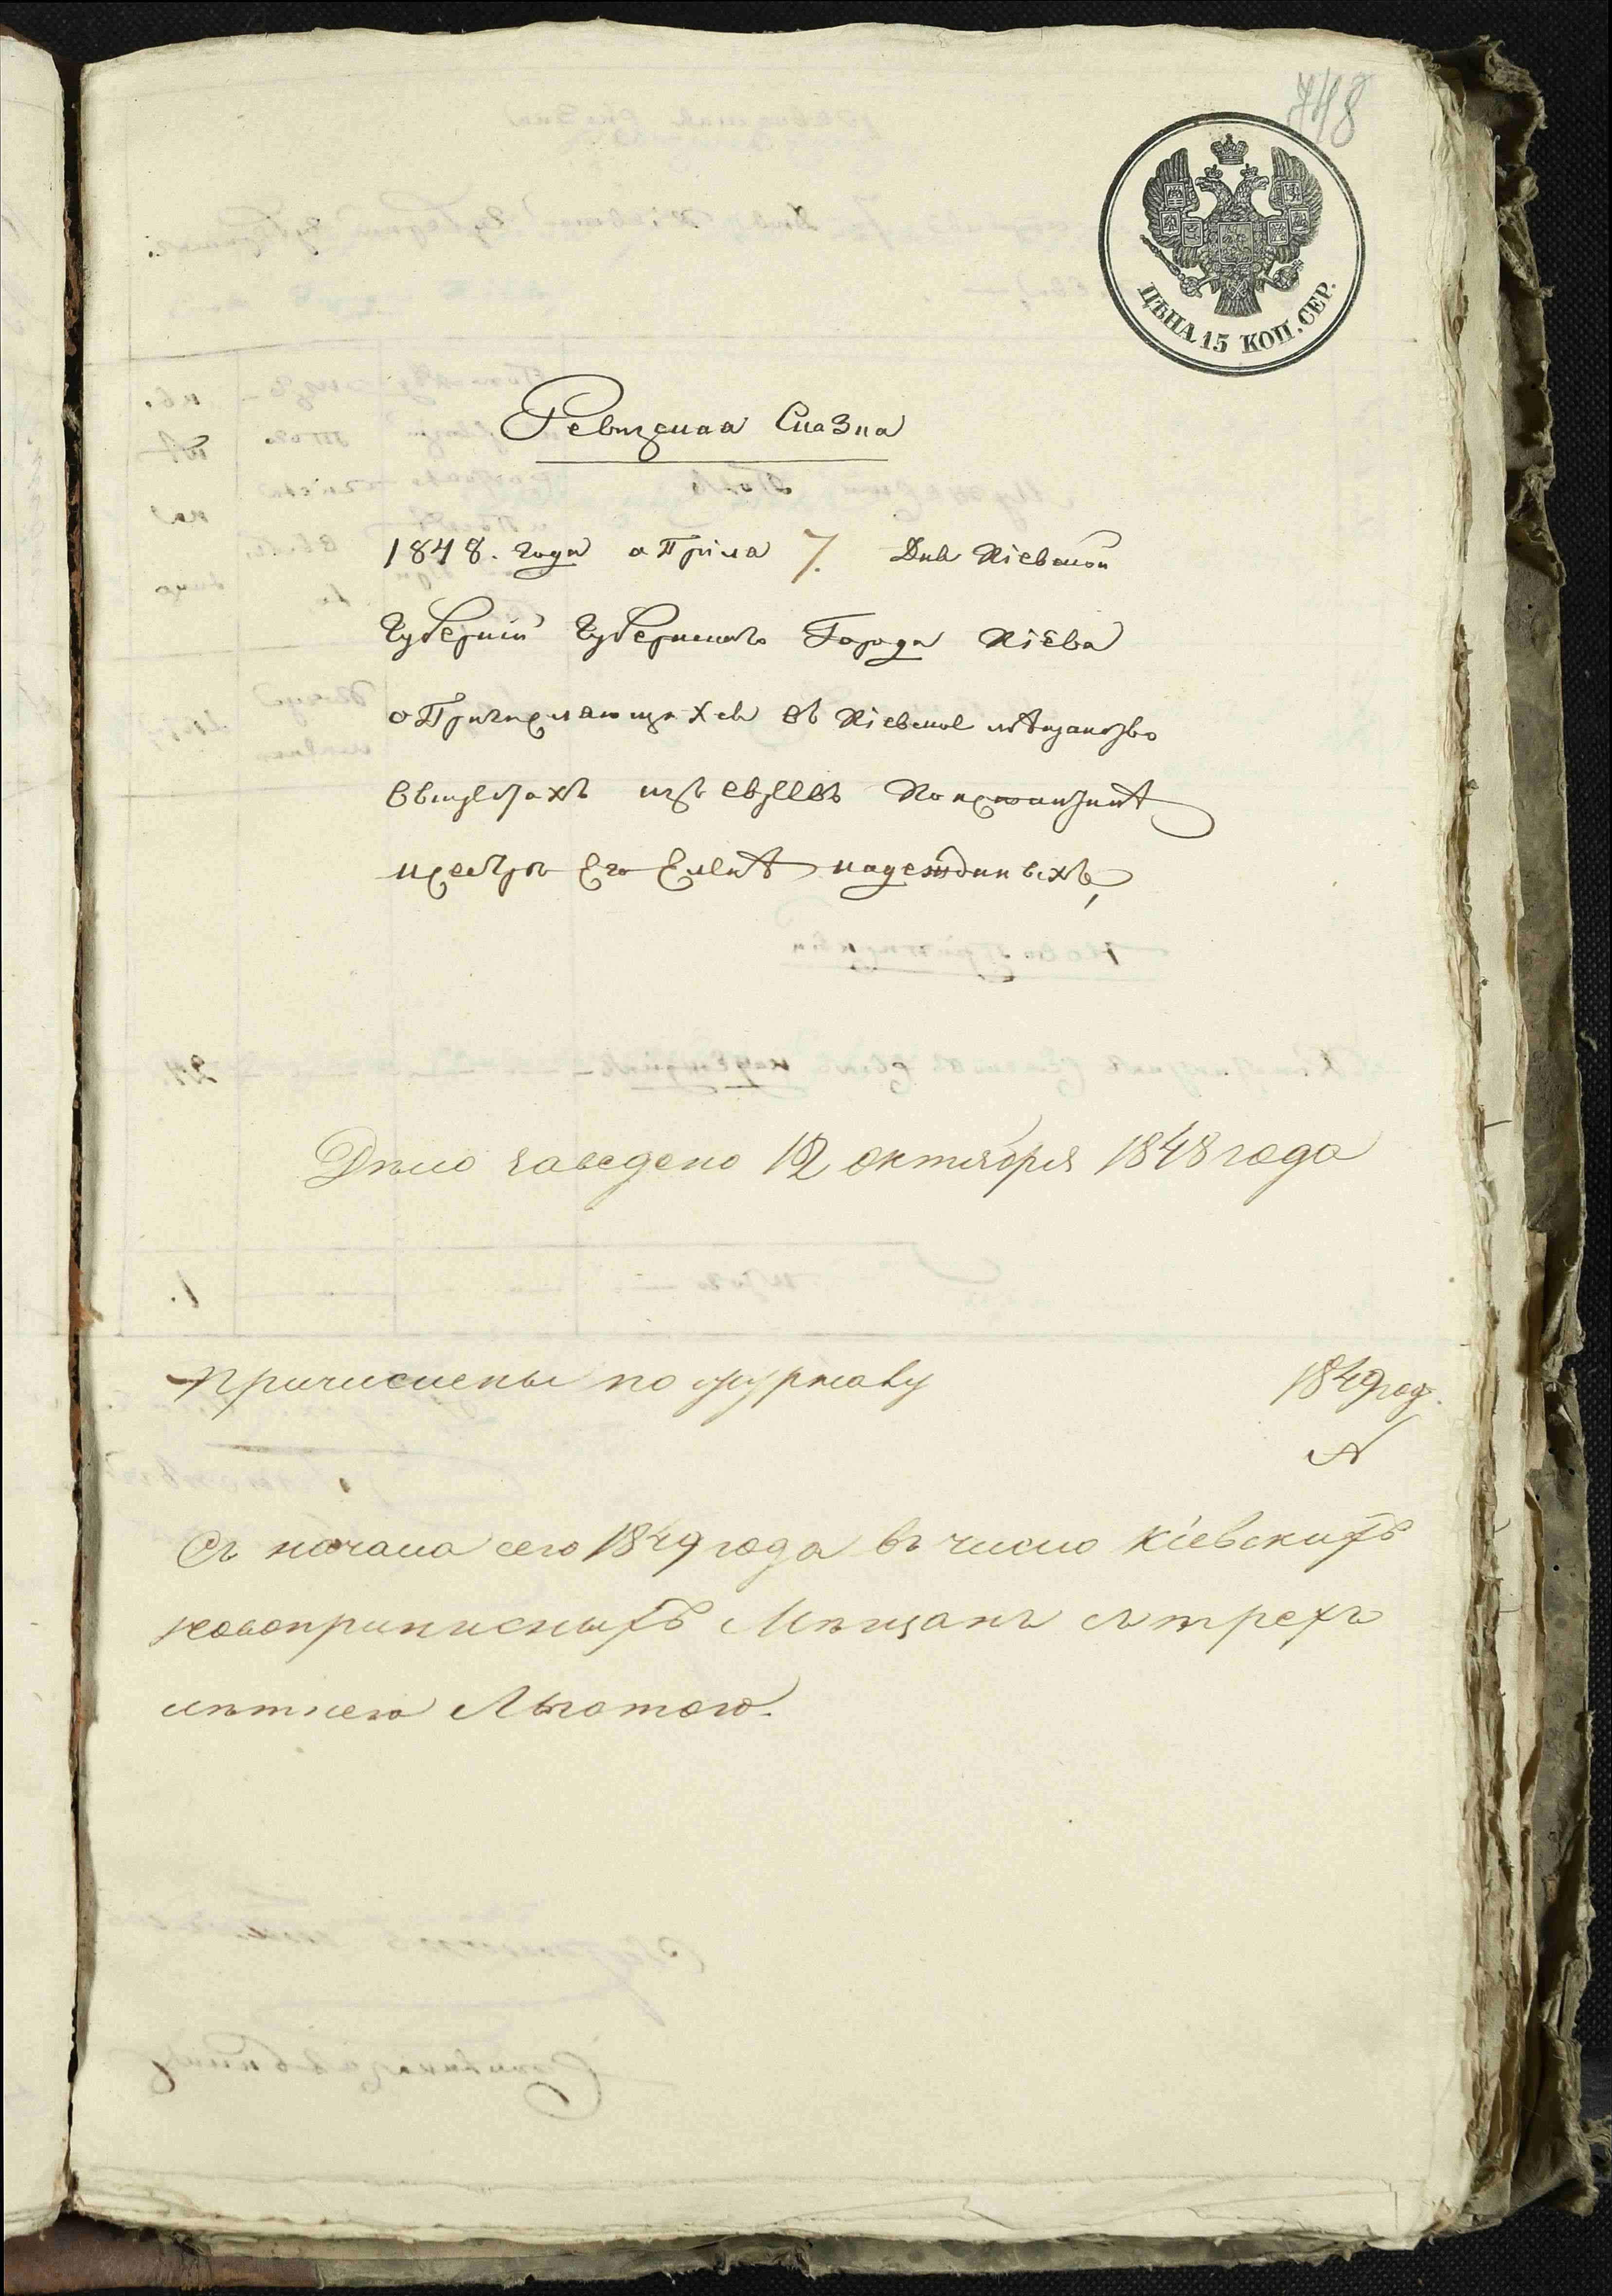 748
ЦѢНА 15 КОП. СЕР.
Ревизская Сказка
1848. года апрѣля 7. Дня Кіевской
Губерніи Губернскаго Города Кіева
о Причисляющихся въ Кіевское мѣщанство
изъ евреевъ Константинѣ
и сестрѣ Его Еленѣ надеждиныхъ,
Дѣло заведено 12 октября 1848 года
Причислены по журналу 1849 год.
№
Съ начала сего 1849 года въ число Кіевскихъ
новоприписныхъ Мѣщанъ съ трехъ
лѣтнею Льготою.